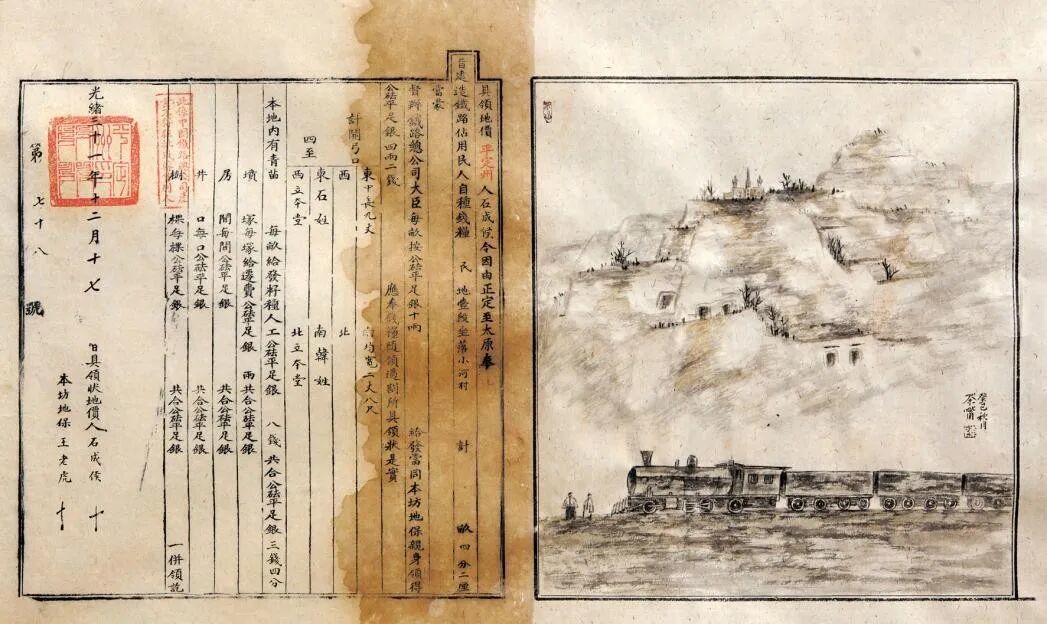 具領地價平定州人石成侯今因由正定至太原奉
旨建造鐵路佔用民人自種錢糧 民 地壹段坐落小河村 計 畝四分二厘
當蒙
督辦鐵路總公司大臣每畝按公砝平足銀十兩 給發當同本坊地保親身領得
公砝平足銀四兩二錢 應奉錢糧隨領過割所具領狀是實
計開弓口
東中長九丈 南均寬二丈八尺
西 北
四至
東石姓 南韓姓
西立本堂 北立本堂
本地內有青苗 每畝給發籽種人工公砝平足銀 八錢 共合公砝平足銀 三錢四分
墳 塚每塚給遷費公砝平足銀 兩 共合公砝平足銀
房 間每間公砝平足銀 共合公砝平足銀
井 口每口公砝平足銀 共合公砝平足銀
樹 棵每棵公砝平足銀 共合公砝平足銀 一併領訖
光緒三十一年十二月十七 日具領狀地價人石成侯 十
本坊地保王老虎 十
第七十八號
癸巳秋月